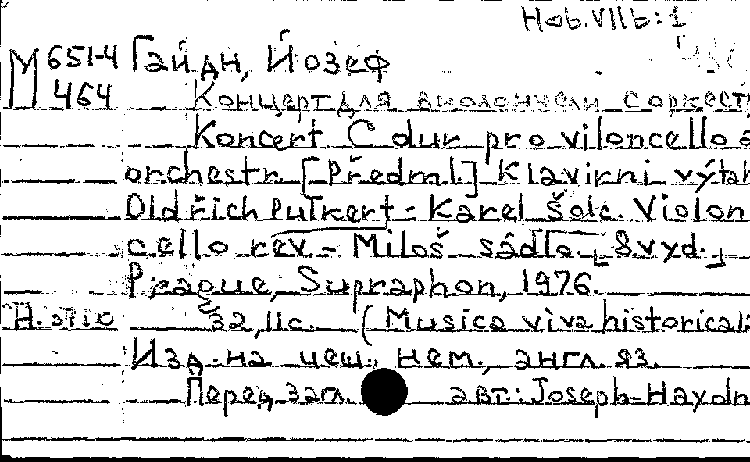 Hob. VIIb: 1
М 651-4 Гайдн, Йозеф
464 Концерт для виолончели с оркест
Koncert C dur pro viloncello a
orchestr. [Předml.] Klavírní výtah
Oldřich Pulkert - Karel Šolc. Violon
cello rev. - Miloš Sádlo. 8 vyd.
Prague, Supraphon, 1976.
32, 11 с. (Musica viva historical
Изд. на чеш., нем., англ. яз.
Перед загл. авт: Joseph Haydn